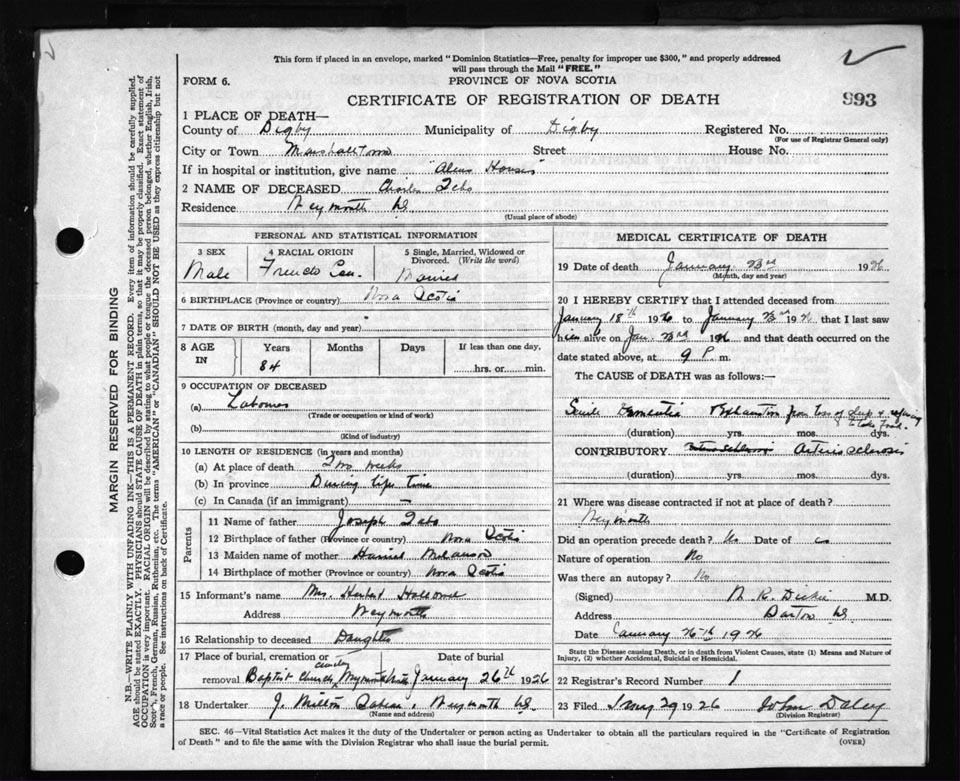 This form if placed in an envelope, marked "Dominion Statistics—Free, penalty for improper use $300," and properly addressed
will pass through the Mail "FREE."
FORM 6.
PROVINCE OF NOVA SCOTIA
CERTIFICATE OF REGISTRATION OF DEATH
993
1 PLACE OF DEATH—
County of Digby Municipality of Digby Registered No.
(For use of Registrar General only)
City or Town Marshalltown Street House No.
If in hospital or institution, give name "Alms House"
2 NAME OF DECEASED Charles
Residence Weymouth NS.
(Usual place of abode)
PERSONAL AND STATISTICAL INFORMATION
3 SEX 4 RACIAL ORIGIN 5 Single, Married, Widowed or Divorced. (Write the word)
Male French Can. Married
6 BIRTHPLACE (Province or country) Nova Scotia
7 DATE OF BIRTH (month, day and year)
8 AGE IN Years Months Days If less than one day,
84 hrs. or min.
9 OCCUPATION OF DECEASED
(a) Labourer
(Trade or occupation or kind of work)
(b)
(Kind of industry)
10 LENGTH OF RESIDENCE (in years and months)
(a) At place of death Two weeks
(b) In province During life time
(c) In Canada (if an immigrant) —
Parents
11 Name of father Joseph
12 Birthplace of father (Province or country) Nova Scotia
13 Maiden name of mother Melanson
14 Birthplace of mother (Province or country) Nova Scotia
15 Informant's name Mrs. Herbert
Address Weymouth
16 Relationship to deceased Daughter
17 Place of burial, cremation or removal Date of burial
Baptist Church January 26th 1926
18 Undertaker J. Milton Weymouth NS.
(Name and address)
MEDICAL CERTIFICATE OF DEATH
19 Date of death January 23rd 1926
(Month, day and year)
20 I HEREBY CERTIFY that I attended deceased from
January 18th 1926 to January 23rd 1926 that I last saw
him alive on Jan. 23rd 1926 and that death occurred on
date stated above, at 9 P. m.
The CAUSE OF DEATH was as follows:—
Senile Dementia Exhaustion from loss of sleep & refusing
to take food.
(duration) yrs. mos. dys.
CONTRIBUTORY Arterio sclerosis
(duration) yrs. mos. dys.
21 Where was disease contracted if not at place of death?
Weymouth
Did an operation precede death? No Date of
Nature of operation No
Was there an autopsy? No
(Signed) M.D.
Address Barton NS.
Date January 26th 1926
State the Disease causing Death, or in death from Violent Causes, state (1) Means and Nature of
Injury, (2) whether Accidental, Suicidal or Homicidal.
22 Registrar's Record Number 1
23 Filed 29 1926 John Daley
(Division Registrar)
SEC. 46—Vital Statistics Act makes it the duty of the Undertaker or person acting as Undertaker to obtain all the particulars required in the "Certificate of Registration
of Death" and to file the same with the Division Registrar who shall issue the burial permit.
(OVER)
MARGIN RESERVED FOR BINDING
N.B.—WRITE PLAINLY WITH UNFADING INK—THIS IS A PERMANENT RECORD. Every item of information should be carefully supplied.
AGE should be stated EXACTLY. PHYSICIANS should STATE CAUSE OF DEATH in plain terms, so that it may be properly classified. Exact statement of
OCCUPATION is very important. RACIAL ORIGIN will be described by stating to what people or tongue the deceased person belonged, whether English, Irish,
Scotch, French, German, Russian, Ruthenian, etc. The terms "AMERICAN" or "CANADIAN" SHOULD NOT BE USED as they express citizenship but not
a race or people. See instructions on back of Certificate.